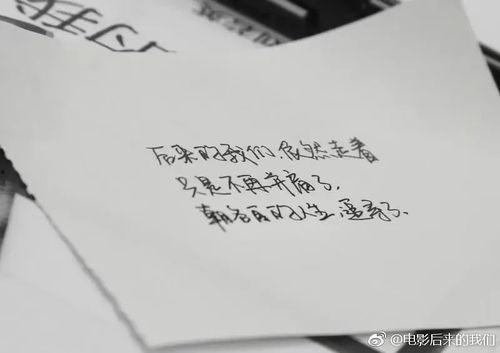 的我
后来的我们,依然走着
只是不再并肩了,
朝各自的人生,追寻了.
@电影后来的我们